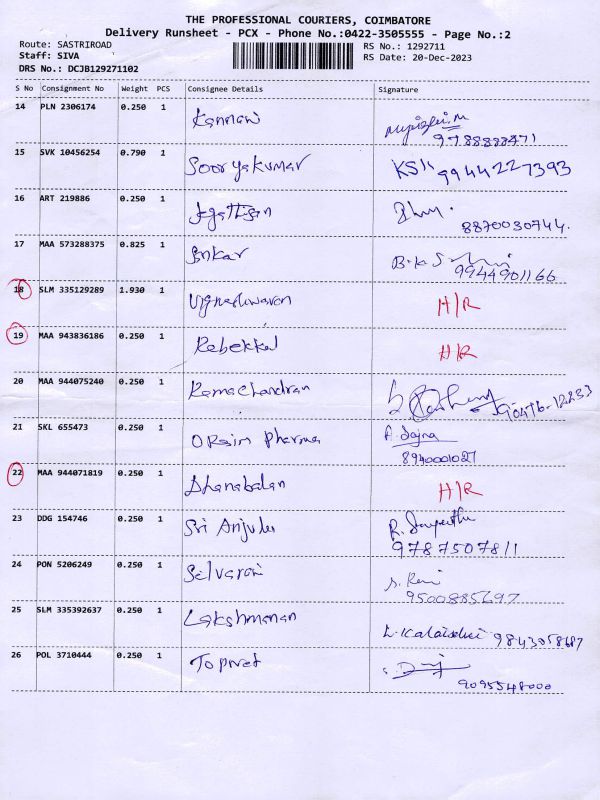 THE PROFESSIONAL COURIERS, COIMBATORE
Delivery Runsheet - PCX - Phone No.:0422-3505555 - Page No.:2
Route: SASTRIROAD
RS No.: 1292711
Staff: SIVA
RS Date: 20-Dec-2023
DRS No.: DCJB129271102
S No Consignment No Weight PCS Consignee Details Signature
14 PLN 2306174 0.250 1 Kannan
15 SVK 10456254 0.790 1 Sooryakumar KS 9944227393
16 ART 219886 0.250 1 Jgathisan
8870030744.
17 MAA 573288375 0.825 1 B.K.S
9944901166
18 SLM 335129289 1.930 1 Vigneshwaran H/R
19 MAA 943836186 0.250 1 Rebekkal H/R
20 MAA 944075240 0.250 1 Ramachandran
21 SKL 655473 0.250 1 Pharma
8940001027
22 MAA 944071819 0.250 1 Dhanabalan H/R
23 DDG 154746 0.250 1 Sri Anjule R.
9787507811
24 PON 5206249 0.250 1 Selvarani
9500885697
25 SLM 335392637 0.250 1 Lakshmanan
9843058687
26 POL 3710444 0.250 1 Topnet
9095548000